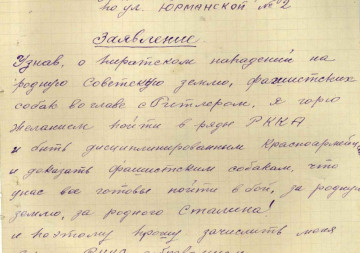 по ул. Юрманской № 2
Заявление
Узнав, о пиратском нападении на
родную Советскую землю, фашистских
собак во главе с Гитлером. я горю
желанием пойти в ряды РККА
и быть дисциплинированным Красноармейц
и доказать фашистским собакам, что
у нас все готовы пойти в бой, за родную
землю, за родного Сталина!
и поэтому прошу зачислить меня